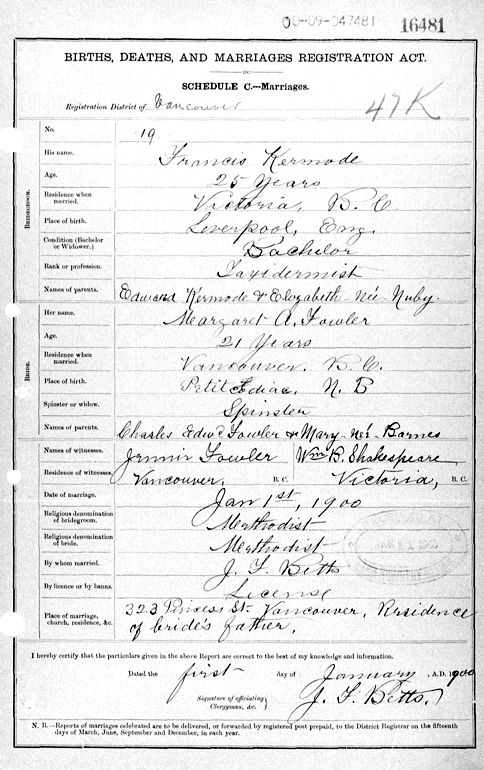 00-09-047481 16481
BIRTHS, DEATHS, AND MARRIAGES REGISTRATION ACT.
SCHEDULE C.—Marriages.
Registration District of Vancouver
47K
No. 19
BRIDEGROOM.
His name. Francis Kermode
Age. 25 Years
Residence when married. Victoria, B.C.
Place of birth. Liverpool, Eng.
Condition (Bachelor or Widower.) Bachelor
Rank or profession. Taxidermist
Names of parents. Edward Kermode & Elizabeth née Nuby.
BRIDE.
Her name. Margaret A. Fowler
Age. 21 Years
Residence when married. Vancouver, B.C.
Place of birth. Petitcodiac, N.B
Spinster or widow. Spinster
Names of parents. Charles Edwd Fowler & Mary née Barnes
Names of witnesses. Jennie Fowler Wm B. Shakespeare
Residence of witnesses. Vancouver, B.C. Victoria, B.C.
Date of marriage. Jan 1st, 1900
Religious denomination of bridegroom. Methodist
Religious denomination of bride. Methodist
By whom married. J. F. Betts
By licence or by banns. License
Place of marriage, church, residence, &c. 323 Princess St. Vancouver, Residence
of bride's father.
I hereby certify that the particulars given in the above Report are correct to the best of my knowledge and information.
Dated the first day of January A.D. 1900
Signature of officiating Clergyman, &c. J. F. Betts.
N. B.—Reports of marriages celebrated are to be delivered, or forwarded by registered post prepaid, to the District Registrar on the fifteenth
days of March, June, September and December, in each year.